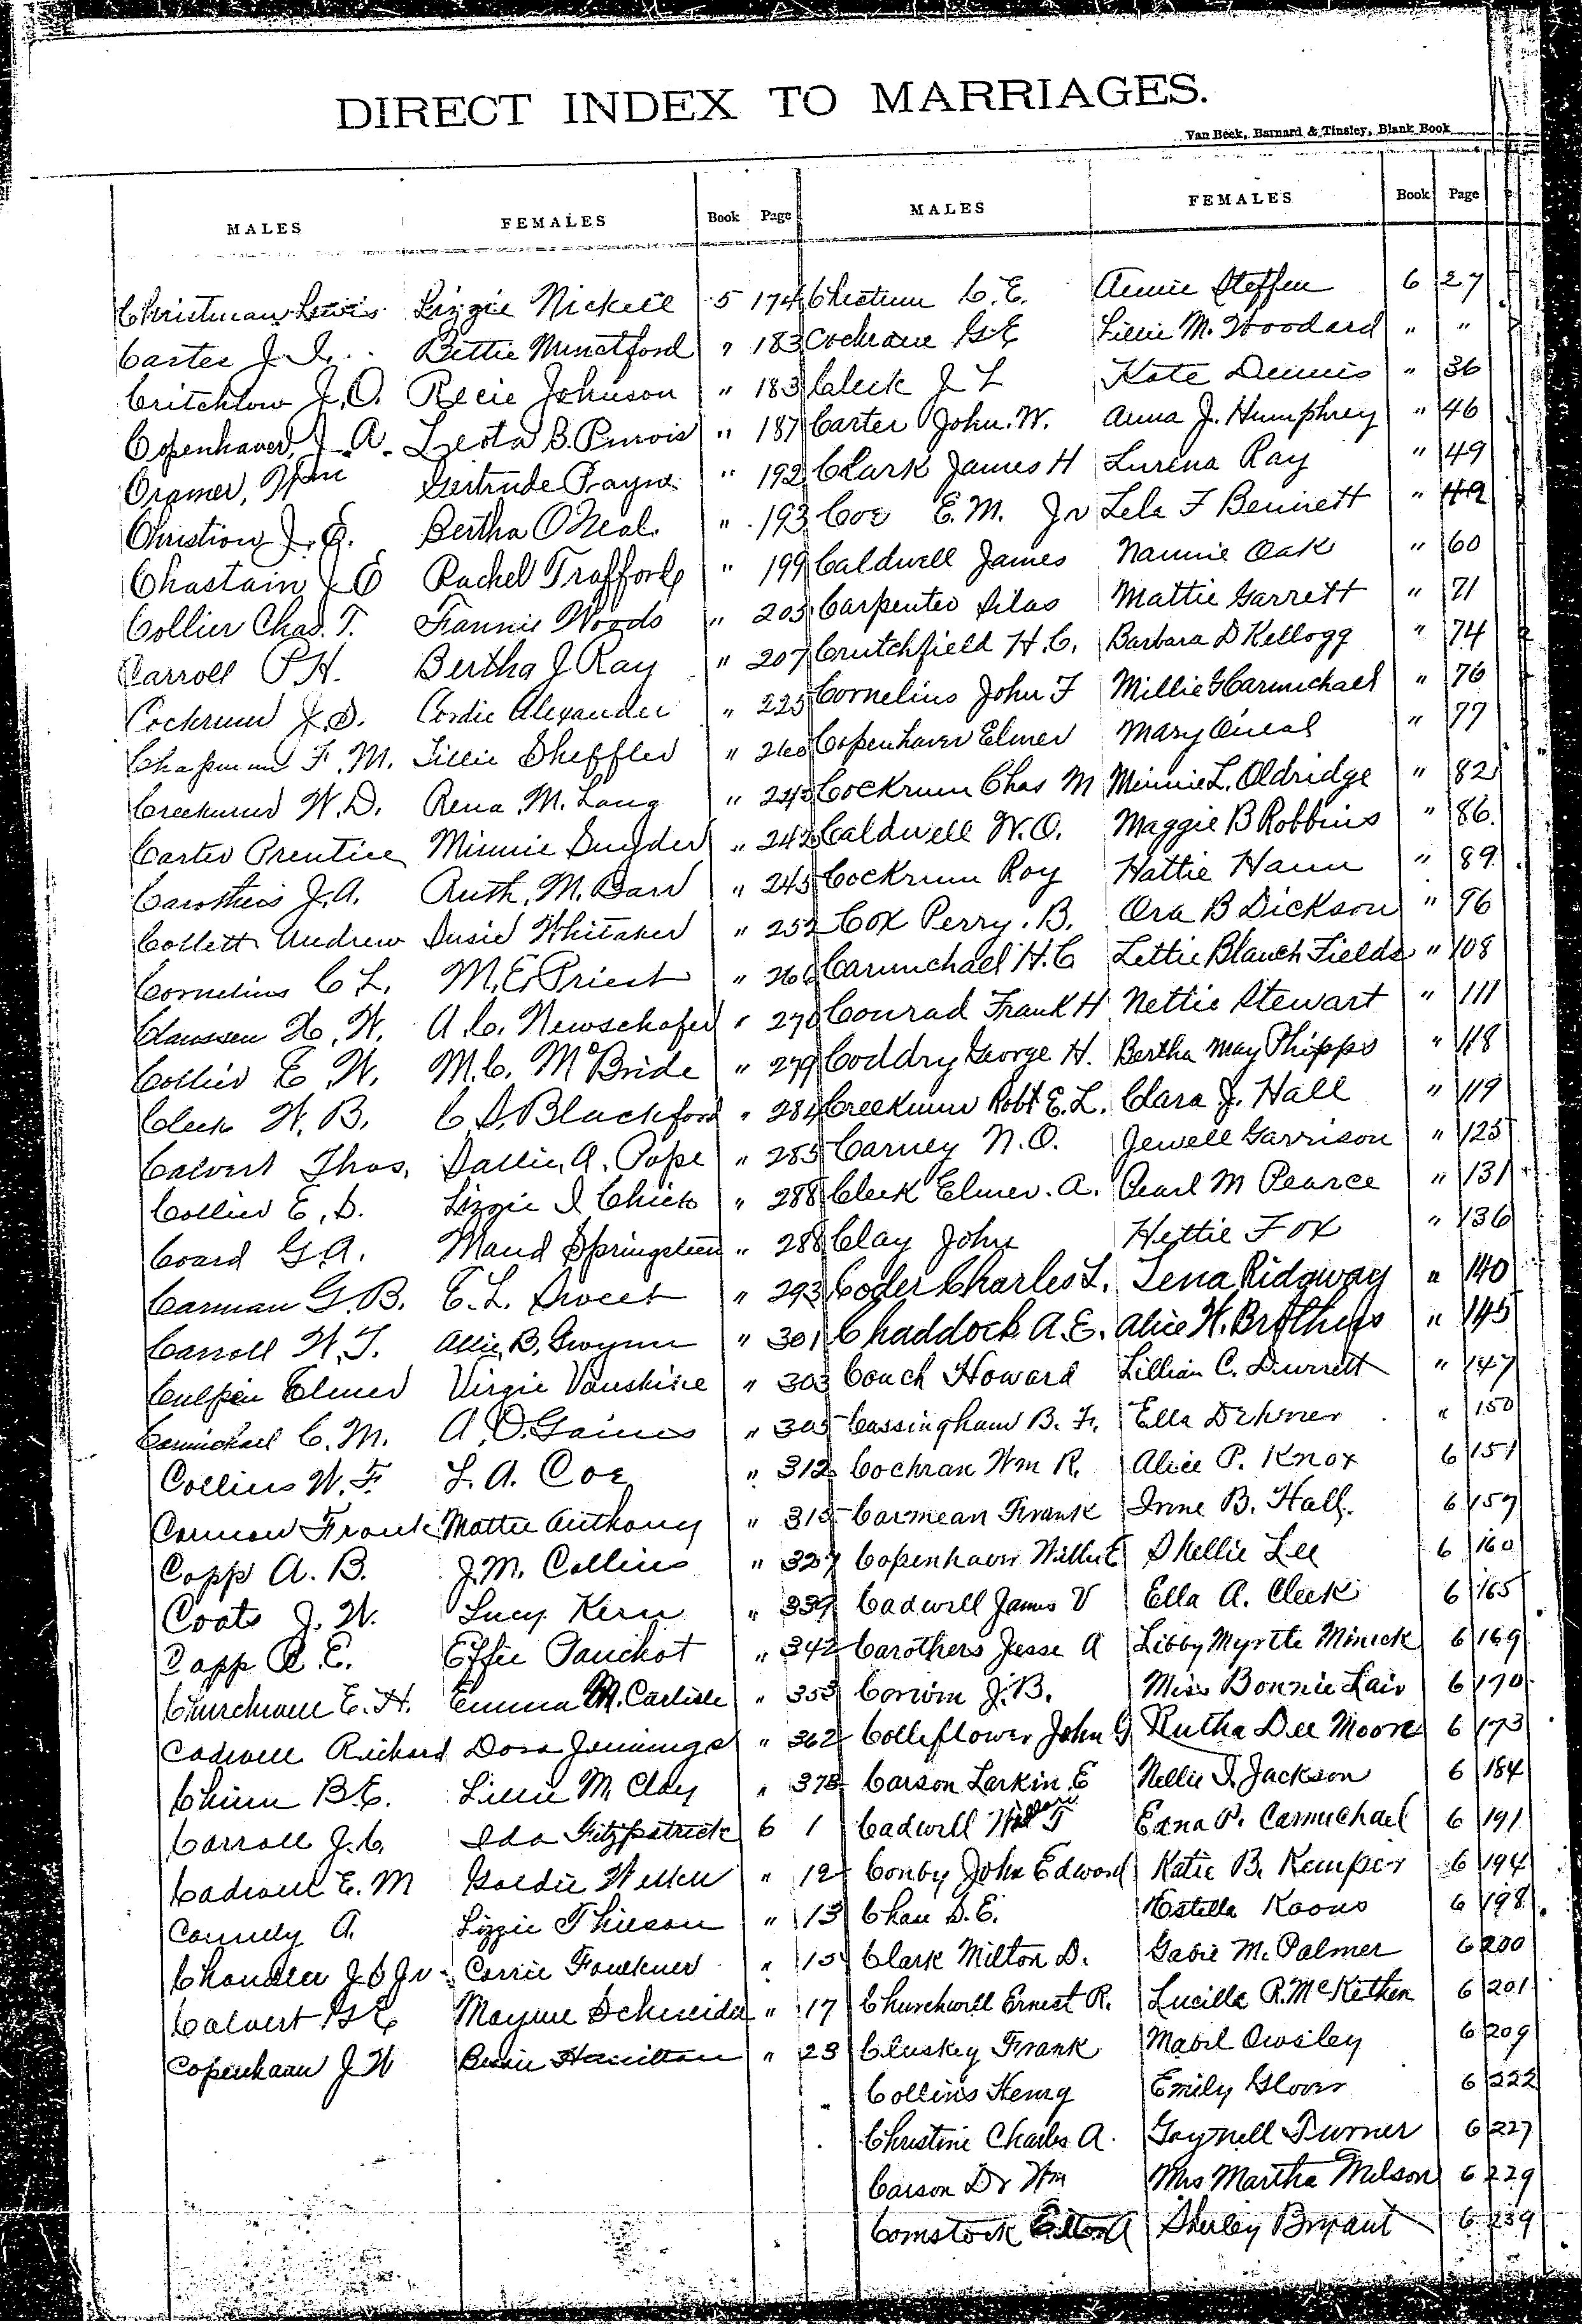 DIRECT INDEX TO MARRIAGES.
Van Beek, Barnard & Tinsley, Blank Book
MALES FEMALES Book Page MALES FEMALES Book Page
Christman Lewis Lizzie Nickell 5 174
Carter J. I. Bettie " 183
Critchlow J. O. Recie Johnson " 183
Copenhaver, J. A. Leota B. Purvis " 187
Cramer, Wm Gertrude Payne " 192
Christian J. E. Bertha O Neal " 193
Chastain J E Rachel Trafford " 199
Collier Chas. T. Fannie Woods " 205
Carroll P H. Bertha J. Ray " 207
Cockrum J. D. Cordie Alexander " 225
Chapman F. M. Tillie Sheffler "
Creekmur W. D. Rena M. Lang "
Carter Prentice Minnie Snyder " 242
Carothers J. A. Ruth. M. Barr " 245
Collett Andrew Susie Whitaker " 252
Cornelius C L. M. E. Priest " 266
Claussen H. W. A. C. Newschafer " 270
Collier E. W. M. C. McBride " 279
Cleek W. B. C. S. Blackford " 284
Calvert Thos. Sallie, A. Pope " 285
Collier E. D. Lizzie I Chick " 288
Coard G. A. Maud Springsteen " 288
Carman G. B. E. L. Sweet " 293
Carroll W. T. Allie, B. Gwynn " 301
Culpin Elmer Virgie Vanskike " 303
Carmichael C. M. A. O. Gaines " 305
Collins W. F. L. A. Coe " 312
Connor Frank Mattie Anthony " 315
Copp A. B. J. M. Collins " 327
Coats J. W. Lucy Kern " 339
Capp R. E. Effie Panchot " 342
Churchwell E. H. Emma M. Carlisle " 353
Cadwell Richard Dora Jennings " 362
Chinn B. E. Lillie M. Clay " 378
Carroll J. C. Ida Fitzpatrick 6 1
Cadwell E. M Goldie " 12
Connelly A. Lizzie Thieson " 13
Chandler J. S Jr. Carrie Faulkner " 15
Calvert G E Mayme Schneider " 17
Copenhaver J W Bessie Hamilton " 23
C. E. Annie Steffen 6 27
Cochrane G. E Lillie M. Woodard " "
Cleek J L Kate Dennis " 36
Carter John. W. Anna J. Humphrey " 46
Clark James H Lurena Ray " 49
Coe E. M. Jr Lela F Bennett " 49
Caldwell James Nannie Oak " 60
Carpenter Silas Mattie Garrett " 71
Crutchfield H. C. Barbara D Kellogg " 74
Cornelius John F Millie G Carmichael " 76
Copenhaver Elmer Mary O'neal " 77
Cockrum Chas M Minnie L. Oldridge " 82
Caldwell W. O. Maggie B Robbins " 86
Cockrum Roy Hattie Hann " 89
Cox Perry. B. Ora B Dickson " 96
Carmichael H. C Lettie Blanch Fields " 108
Conrad Frank H Nettie Stewart " 111
Coddry George H. Bertha May Phipps " 118
Creekmur Robt E. L. Clara J. Hall " 119
Carney N. O. Jewell Garrison " 125
Cleek Elmer. A. Pearl M Pearce " 131
Clay John Hettie Fox " 136
Coder Charles L. Lena Ridgway " 140
Chaddock A. E. Alice H. Brothers " 145
Couch Howard Lillian C. Durrett " 147
Cassingham B. F. Ella Dehner " 150
Cochran Wm R. Alice P. Knox 6 151
Carmean Frank Irine B. Hall. 6 157
Copenhaver Willie E Shellie Lee 6 160
Cadwell James V Ella A. Cleek 6 165
Carothers Jesse A Libby Myrtle Minick 6 169
Corwin J. B. Miss Bonnie Lair 6 170
Colliflower John G Rutha Dee Moore 6 173
Carson Larkin E Nellie I. Jackson 6 184
Cadwell Willard T Edna P. Carmichael 6 191
Conby John Edward Katie B. Kemper 6 194
Chau S. E. Estella Koons 6 198
Clark Milton D. Gabie M. Palmer 6 200
Churchwell Ernest R. Lucille R. McKethen 6 201
Cluskey Frank Mabel Owsley 6 209
Collins Henry Emily Glover 6 222
Christine Charles A. Gaynell Turner 6 227
Carson Dr Wm Mrs Martha Milson 6 229
Comstock Elton A Shirley Bryant 6 239